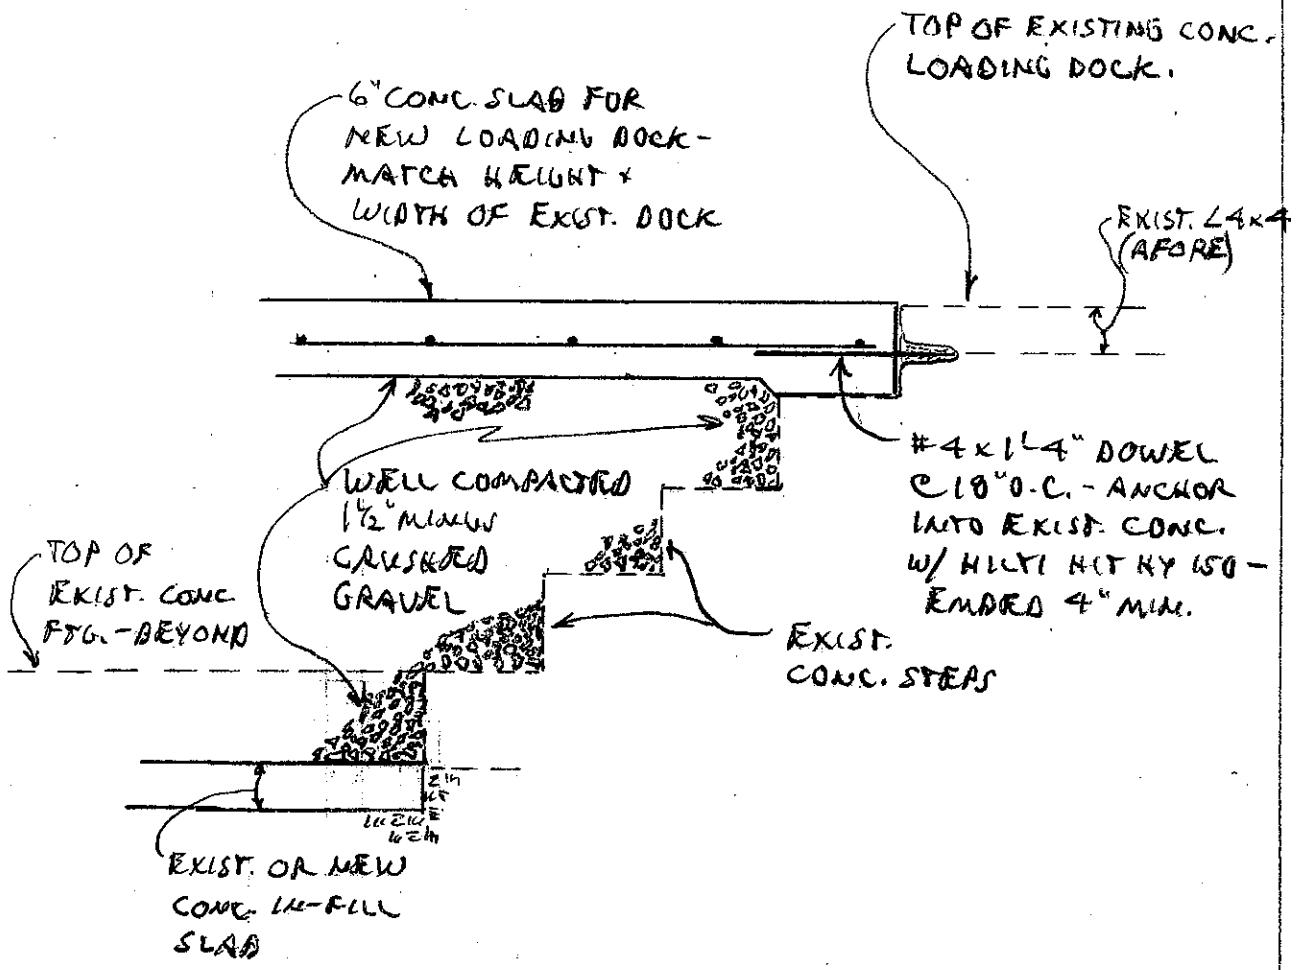 TOP OF EXISTING CONC.
LOADING DOCK.
6" CONC. SLAB FOR
NEW LOADING DOCK-
MATCH HEIGHT &
WIDTH OF EXIST. DOCK
EXIST. L4x4
(AFORE)
#4 x 1'-4" DOWEL
@ 18" O.C. - ANCHOR
INTO EXIST. CONC.
W/ HILTI HIT HY 150 -
EMBED 4" MIN.
WELL COMPACTED
1 1/2" MINUS
CRUSHED
GRAVEL
TOP OF
EXIST. CONC
FTG. - BEYOND
EXIST.
CONC. STEPS
EXIST. OR NEW
CONC. IN-FILL
SLAB